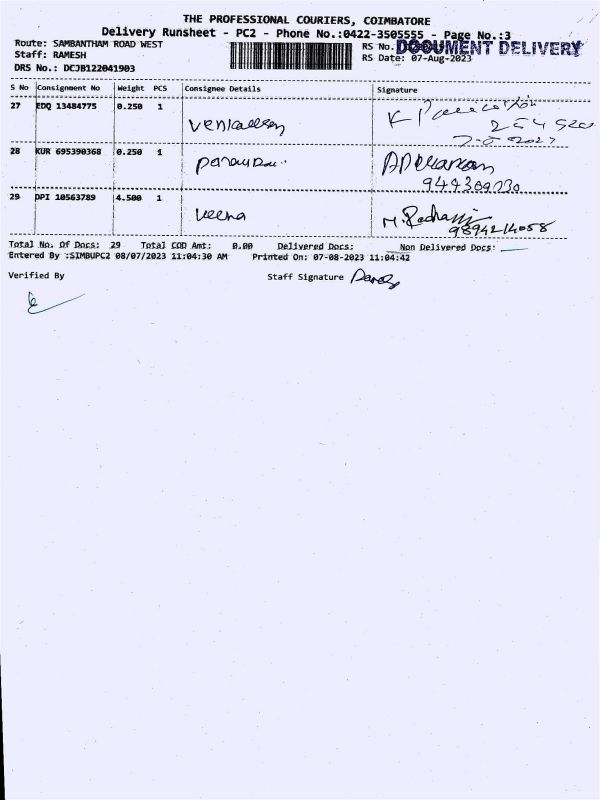 THE PROFESSIONAL COURIERS, COIMBATORE
Delivery Runsheet - PC2 - Phone No.:0422-3505555 - Page No.:3
Route: SAMBANTHAM ROAD WEST
RS No.
DOCUMENT DELIVERY
Staff: RAMESH
RS Date: 07-Aug-2023
DRS No.: DCJB122041903
S No Consignment No Weight PCS Consignee Details Signature
27 EDQ 13484775 0.250 1
28 KUR 695390368 0.250 1
29 DPI 10563789 4.500 1
Veena
9894214058
Total No. Of Docs: 29 Total COD Amt: 0.00 Delivered Docs: Non Delivered Docs:
Entered By :SIMBUPC2 08/07/2023 11:04:30 AM Printed On: 07-08-2023 11:04:42
Verified By Staff Signature